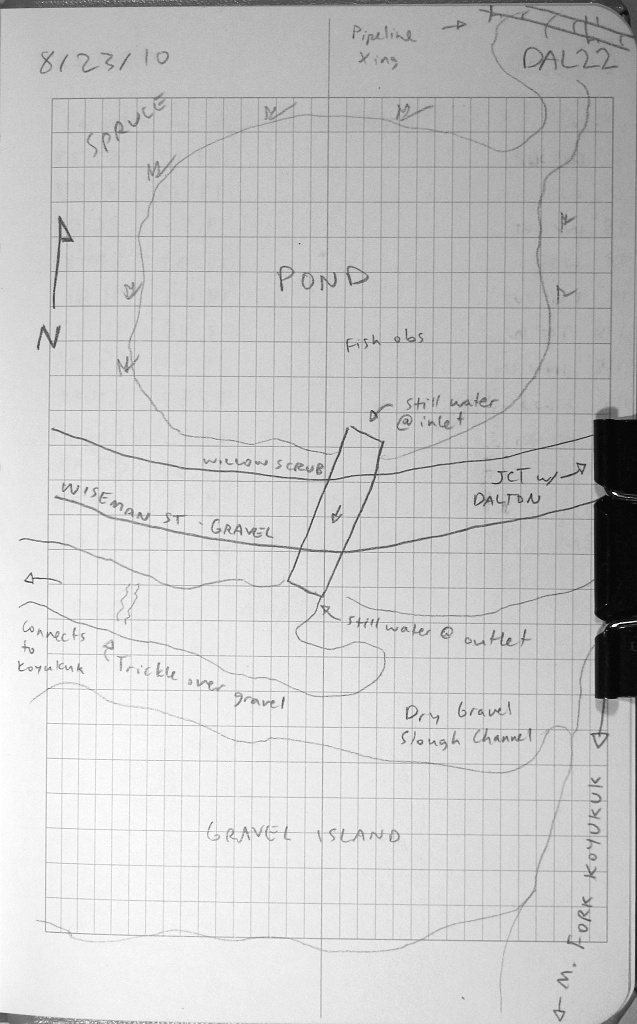 Pipeline
Xing
8/23/10
DAL22
SPRUCE
N
POND
Fish obs
still water
@ inlet
WILLOW SCRUB
JCT w/
DALTON
WISEMAN ST - GRAVEL
still water @ outlet
Connects
to
Koyukuk
Trickle over gravel
Dry Gravel
Slough Channel
GRAVEL ISLAND
M. FORK KOYUKUK